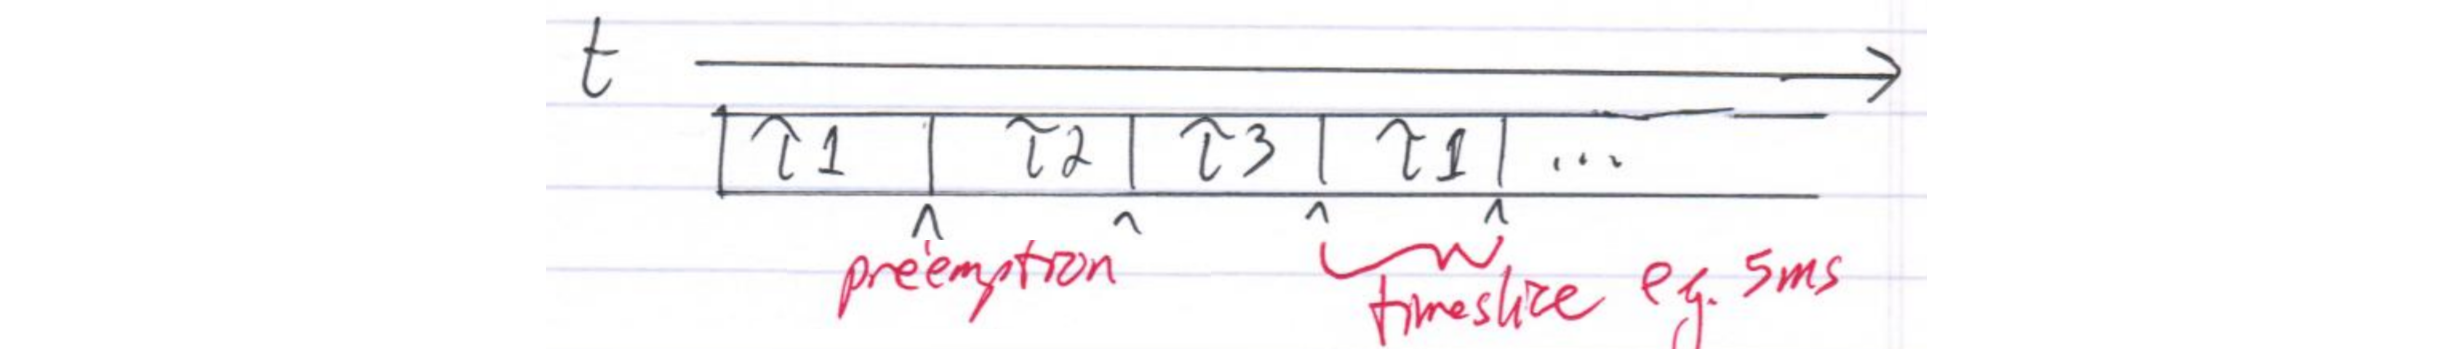 t
τ1 τ2 τ3 τ1 ...
^ ^ ^ ^
preemption
timeslice eg. 5ms